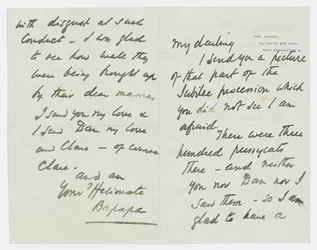 THE GRANGE,
49, NORTH END ROAD,
WEST KENSINGTON, W.
my darling
I send you a picture
of that part of the
Jubilee procession which
you did not see I am
afraid.
There were three
hundred pussycats
there - and neither
you nor Dan nor I
saw them - so I am
glad to have a
with disgust at such
conduct - I was glad
to see how well they
were being brought up
by their dear mamas
I send you my love &
I send Dan my love
and Clare - of course
Clare -
and am
Your
Bapapa